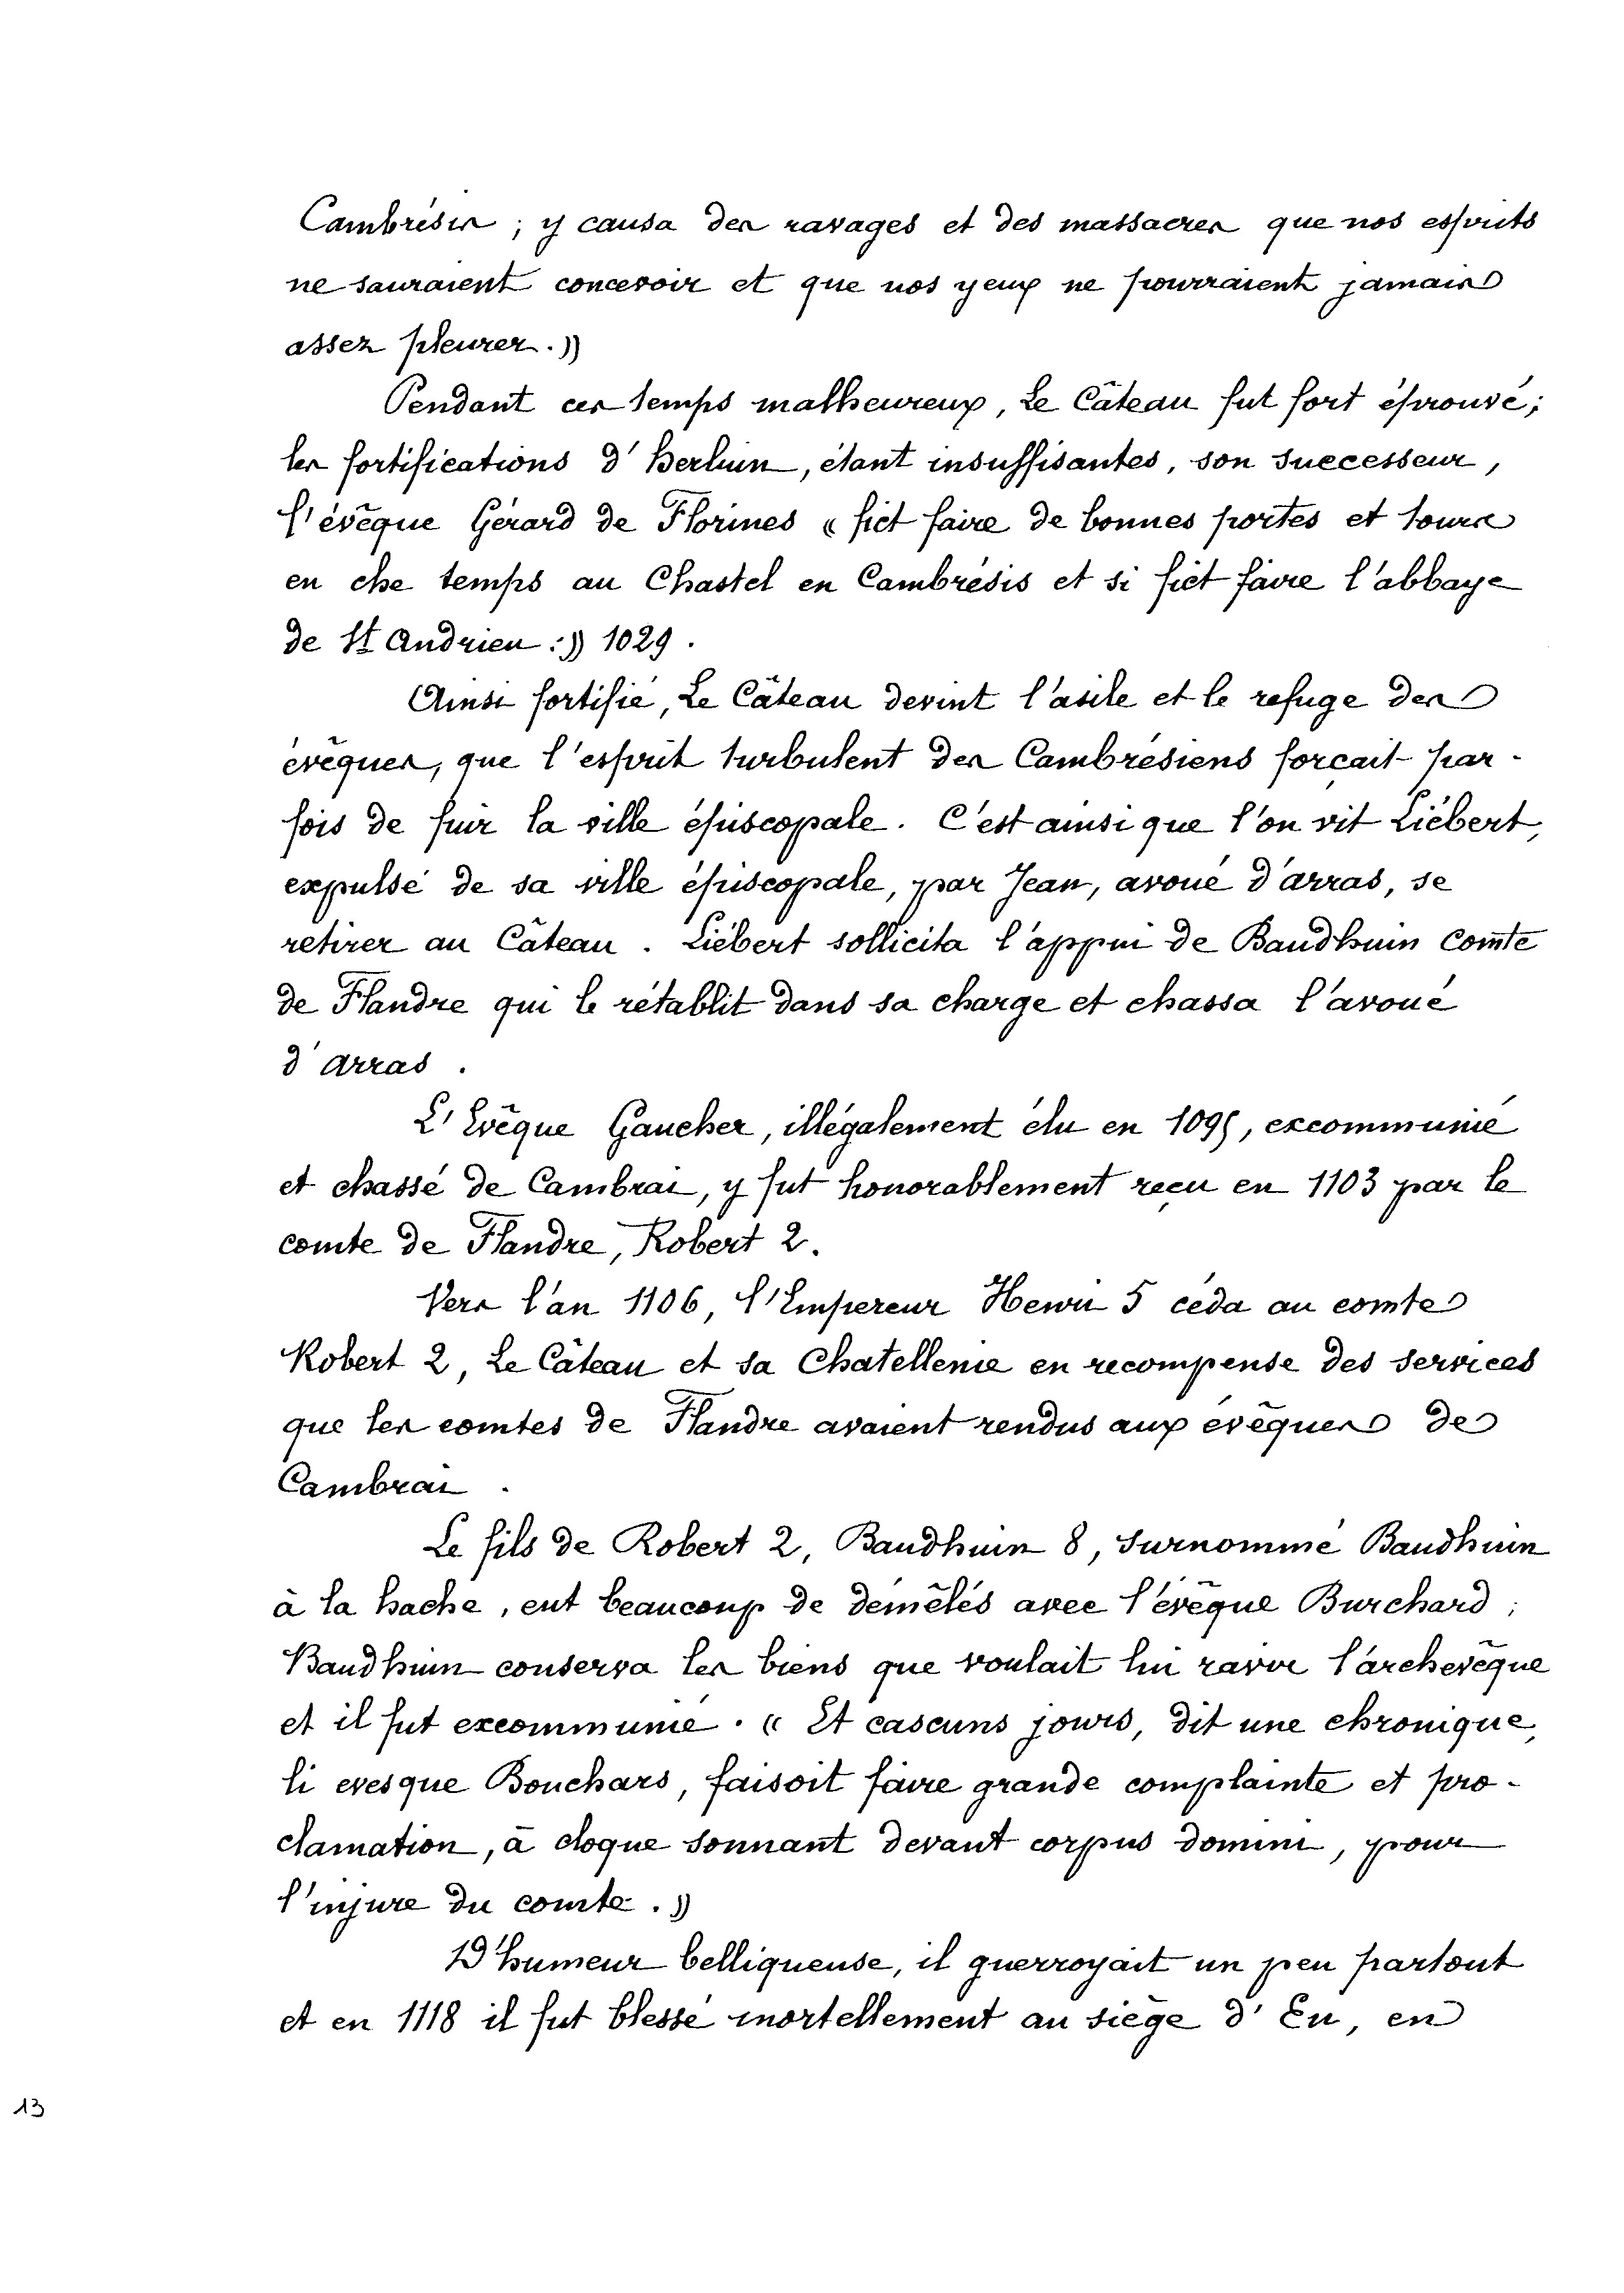 Cambrésis ; y causa des ravages et des massacres que nos esprits
ne sauraient concevoir et que nos yeux ne pourraient jamais
assez pleurer . »
Pendant ces temps malheureux, Le Câteau fut fort éprouvé ;
les fortifications d'Herluin, étant insuffisantes, son successeur,
l'évêque Gérard de Florines « fict faire de bonnes portes et tours
en che temps au Chastel en Cambrésis et si fict faire l'abbaye
de St Andrieu : » 1029 .
Ainsi fortifié, Le Câteau devint l'asile et le refuge des
évêques, que l'esprit turbulent des Cambrésiens forçait par-
fois de fuir la ville épiscopale. C'est ainsi que l'on vit Liébert,
expulsé de sa ville épiscopale, par Jean, avoué d'arras, se
retirer au Câteau . Liébert sollicita l'appui de Baudhuin comte
de Flandre qui le rétablit dans sa charge et chassa l'avoué
d'arras .
L'Evêque Gaucher, illégalement élu en 1095, excommunié
et chassé de Cambrai, y fut honorablement reçu en 1103 par le
comte de Flandre, Robert 2.
Vers l'an 1106, l'Empereur Henri 5 céda au comte
Robert 2, Le Câteau et sa Chatellenie en recompense des services
que les comtes de Flandre avaient rendus aux évêques de
Cambrai .
Le fils de Robert 2, Baudhuin 8, surnommé Baudhuin
à la hache, eut beaucoup de démêlés avec l'évêque Burchard ;
Baudhuin conserva les biens que voulait lui ravir l'archevêque
et il fut excommunié . « Et cascuns jours, dit une chronique,
li evesque Bouchars, faisoit faire grande complainte et pro-
clamation, à cloque sonnant devant corpus domini, pour
l'injure du comte . »
D'humeur belliqueuse, il guerroyait un peu partout
et en 1118 il fut blessé mortellement au siège d'Eu, en
13